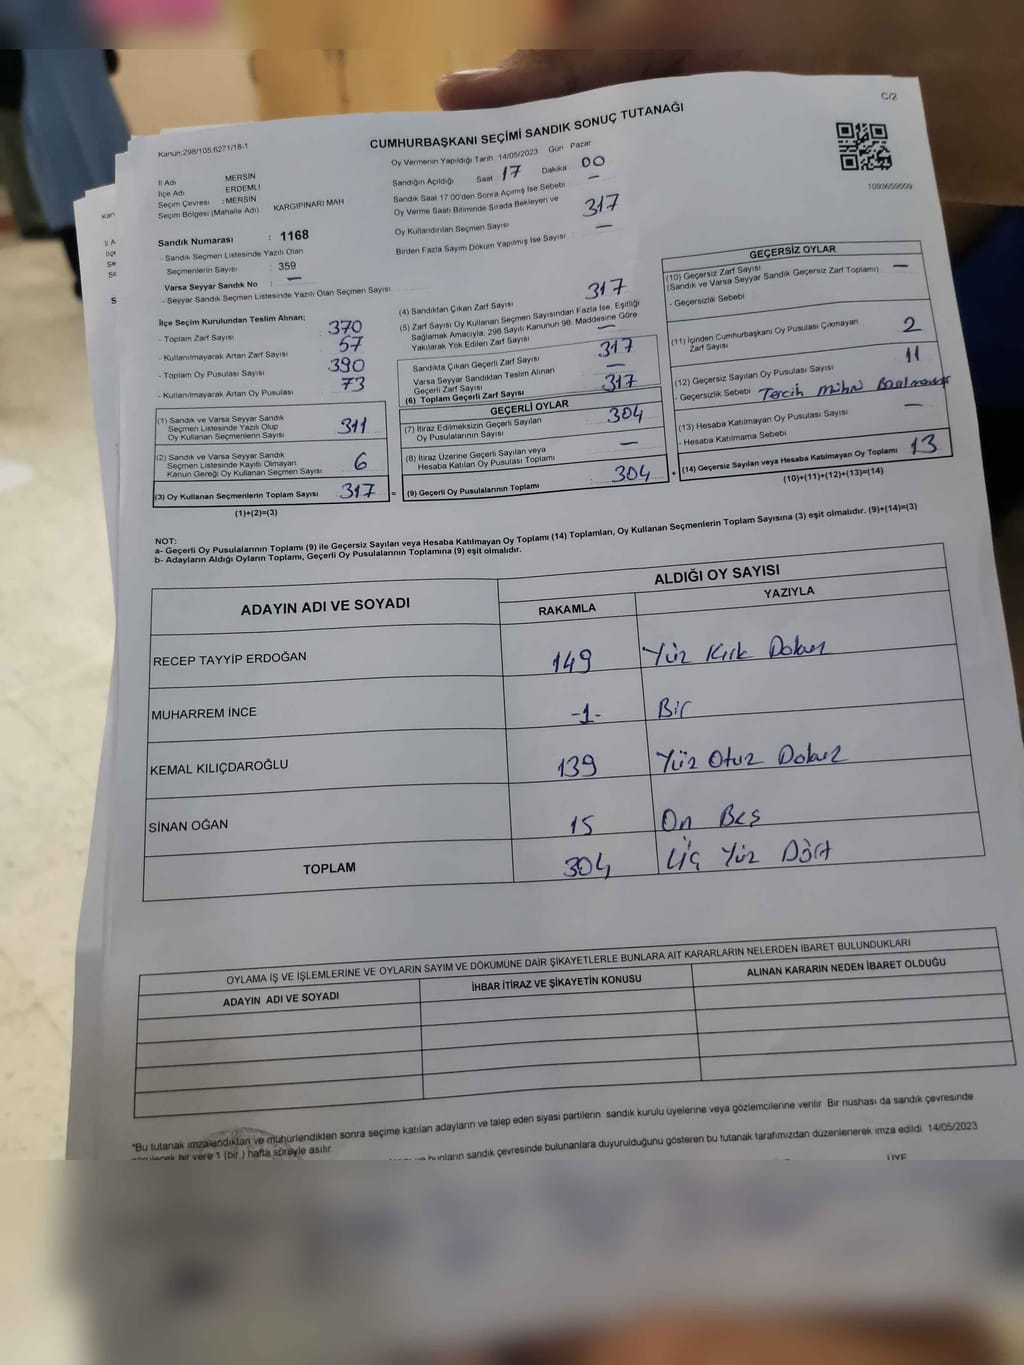 C/2
Kanun.298/105,6271/18-1
CUMHURBAŞKANI SEÇİMİ SANDIK SONUÇ TUTANAĞI
İl Adı MERSİN
İlçe Adı ERDEMLİ
Seçim Çevresi : MERSİN
Seçim Bölgesi (Mahalle Adı) KARGIPINARI MAH
Sandık Numarası : 1168
- Sandık Seçmen Listesinde Yazılı Olan
Seçmenlerin Sayısı : 359
Varsa Seyyar Sandık No : —
- Seyyar Sandık Seçmen Listesinde Yazılı Olan Seçmen Sayısı
Oy Vermenin Yapıldığı Tarih 14/05/2023 Gün Pazar
Sandığın Açıldığı Saat 17 Dakika 00
Sandık Saat 17 00'den Sonra Açımış İse Sebebi —
Oy Verme Saati Bitiminde Sırada Bekleyen ve
Oy Kullandırılan Seçmen Sayısı 317
Birden Fazla Sayım Döküm Yapılmış İse Sayısı : —
1093659609
İlçe Seçim Kurulundan Teslim Alınan;
- Toplam Zarf Sayısı 370
- Kullanılmayarak Artan Zarf Sayısı 57
- Toplam Oy Pusulası Sayısı 390
- Kullanılmayarak Artan Oy Pusulası 73
(1) Sandık ve Varsa Seyyar Sandık
Seçmen Listesinde Yazılı Olup
Oy Kullanan Seçmenlerin Sayısı 311
(2) Sandık ve Varsa Seyyar Sandık
Seçmen Listesinde Kayıtlı Olmayan
Kanun Gereği Oy Kullanan Seçmen Sayısı 6
(3) Oy Kullanan Seçmenlerin Toplam Sayısı 317 =
(1)+(2)=(3)
(4) Sandıktan Çıkan Zarf Sayısı 317
(5) Zarf Sayısı Oy Kullanan Seçmen Sayısından Fazla İse, Eşitliği
Sağlamak Amacıyla, 298 Sayılı Kanunun 98. Maddesine Göre
Yakılarak Yok Edilen Zarf Sayısı —
Sandıkta Çıkan Geçerli Zarf Sayısı 317
Varsa Seyyar Sandıktan Teslim Alınan
Geçerli Zarf Sayısı —
(6) Toplam Geçerli Zarf Sayısı 317
GEÇERLİ OYLAR
(7) İtiraz Edilmeksizin Geçerli Sayılan
Oy Pusulalarının Sayısı 304
(8) İtiraz Üzerine Geçerli Sayılan veya
Hesaba Katılan Oy Pusulası Toplamı —
(9) Geçerli Oy Pusulalarının Toplamı 304 +
GEÇERSİZ OYLAR
(10) Geçersiz Zarf Sayısı
(Sandık ve Varsa Seyyar Sandık Geçersiz Zarf Toplamı) —
- Geçersizlik Sebebi
(11) İçinden Cumhurbaşkanı Oy Pusulası Çıkmayan
Zarf Sayısı 2
(12) Geçersiz Sayılan Oy Pusulası Sayısı 11
- Geçersizlik Sebebi Tercih mühü
(13) Hesaba Katılmayan Oy Pusulası Sayısı —
- Hesaba Katılmama Sebebi
(14) Geçersiz Sayılan veya Hesaba Katılmayan Oy Toplamı 13
(10)+(11)+(12)+(13)=(14)
NOT:
a- Geçerli Oy Pusulalarının Toplamı (9) ile Geçersiz Sayılan veya Hesaba Katılmayan Oy Toplamı (14) Toplamları, Oy Kullanan Seçmenlerin Toplam Sayısına (3) eşit olmalıdır. (9)+(14)=(3)
b- Adayların Aldığı Oyların Toplamı, Geçerli Oy Pusulalarının Toplamına (9) eşit olmalıdır.
ADAYIN ADI VE SOYADI
ALDIĞI OY SAYISI
RAKAMLA YAZIYLA
RECEP TAYYİP ERDOĞAN 149 Yüz Kırk Dokuz
MUHARREM İNCE -1- Bir
KEMAL KILIÇDAROĞLU 139 Yüz Otuz Dokuz
SİNAN OĞAN 15 On Beş
TOPLAM 304 Üç Yüz Dört
OYLAMA İŞ VE İŞLEMLERİNE VE OYLARIN SAYIM VE DÖKÜMÜNE DAİR ŞİKAYETLERLE BUNLARA AİT KARARLARIN NELERDEN İBARET BULUNDUKLARI
ADAYIN ADI VE SOYADI İHBAR İTİRAZ VE ŞİKAYETİN KONUSU ALINAN KARARIN NEDEN İBARET OLDUĞU
*Bu tutanak imzalandıktan ve mühürlendikten sonra seçime katılan adayların ve talep eden siyasi partilerin sandık kurulu üyelerine veya gözlemcilerine verilir Bir nüshası da sandık çevresinde
görülecek bir yere 1 (bir ) hafta süreyle asılır.
bunların sandık çevresinde bulunanlara duyurulduğunu gösteren bu tutanak tarafımızdan düzenlenerek imza edildi 14/05/2023
ÜYE